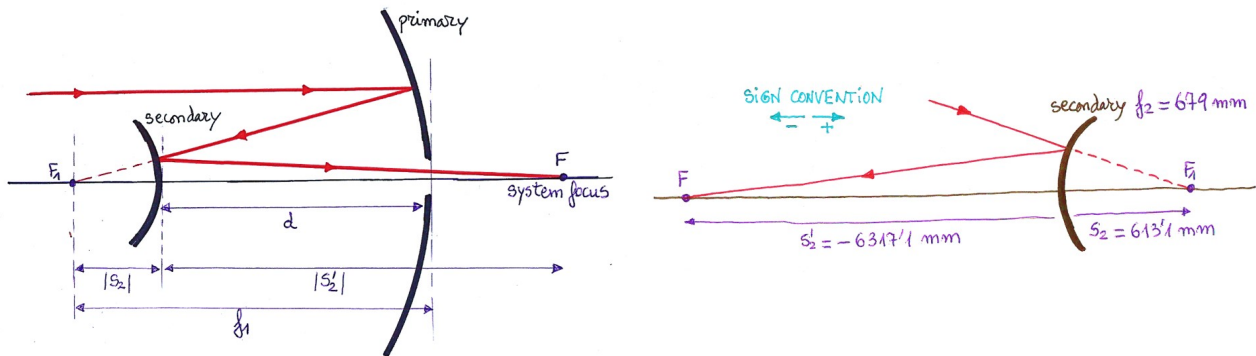 primary
secondary
F₁
F
system focus
d
|S₂|
|S'₂|
f₁
SIGN CONVENTION
− +
secondary f₂ = 679 mm
F
F₁
S'₂ = −6317'1 mm
S₂ = 613'1 mm